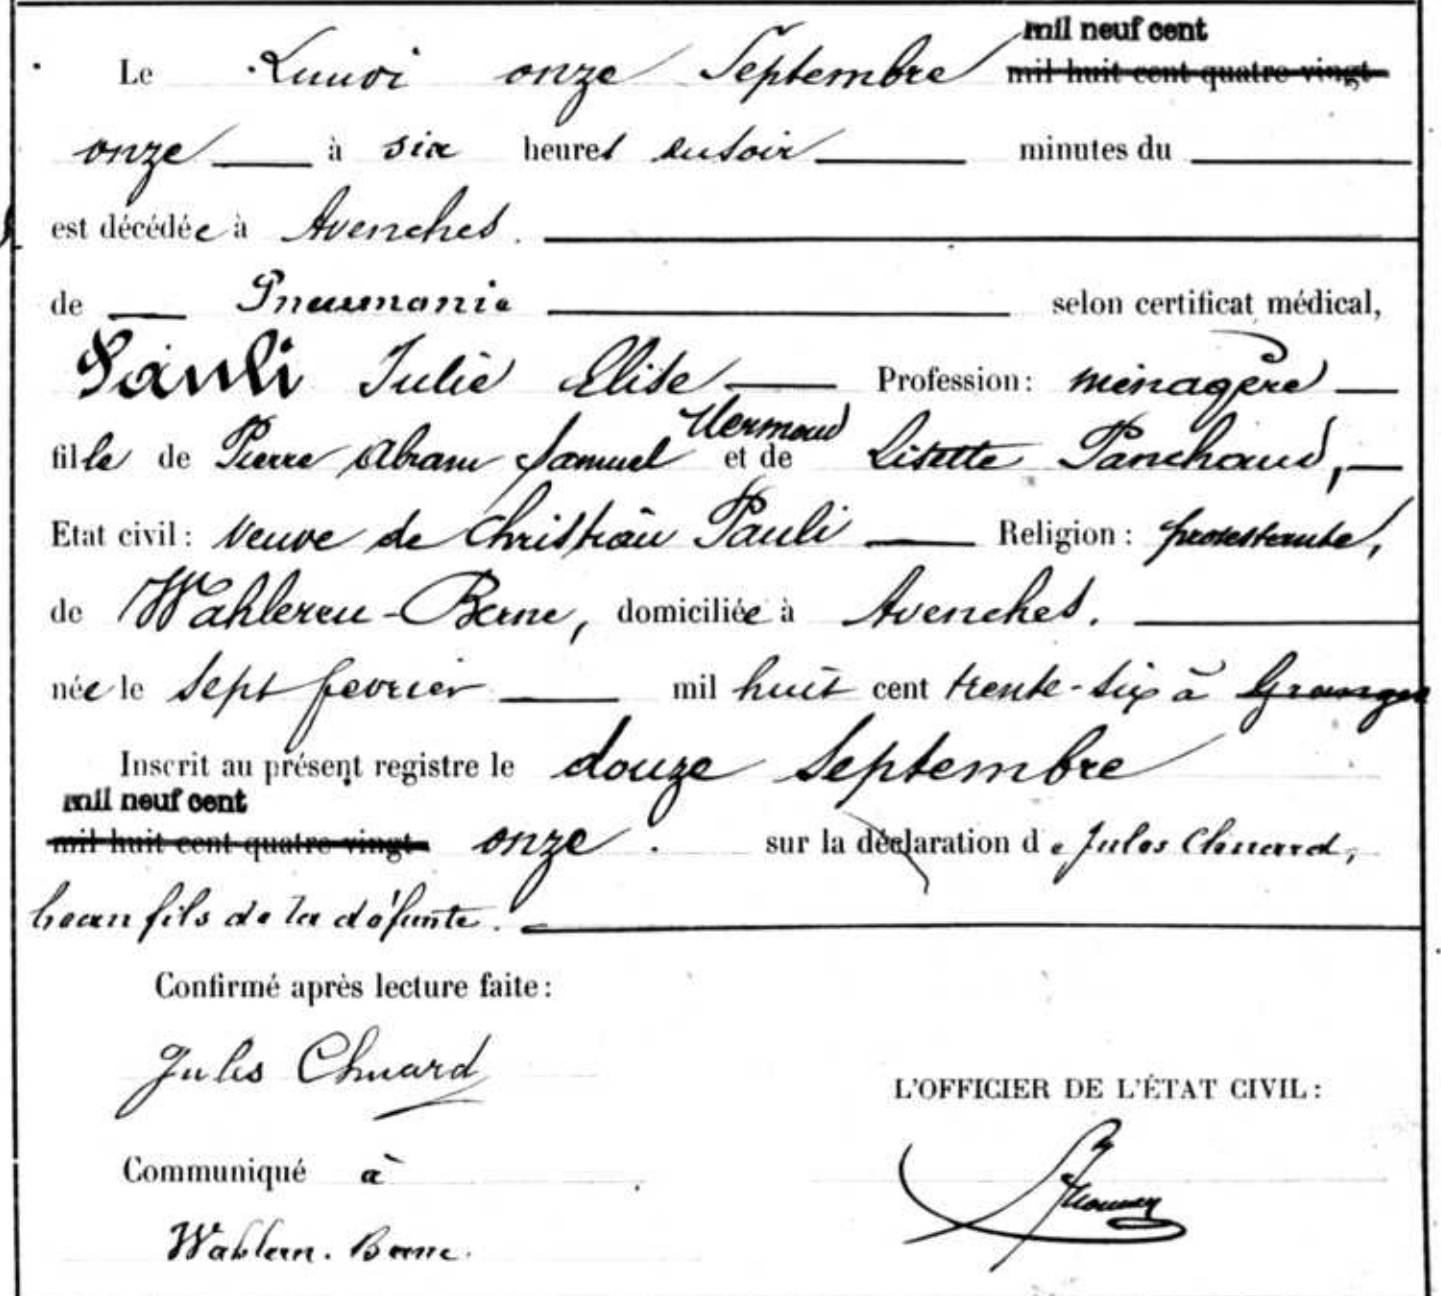 mil neuf cent
Le Lundi onze Septembre mil huit cent quatre-vingt
onze à six heures du soir minutes du
est décédée à Avenches.
de Pneumonie selon certificat médical,
Pauli Julie Elise Profession: ménagère
fille de Pierre Abram Samuel Mermoud et de Lisette Panchaud,
Etat civil: veuve de Christian Pauli Religion: protestante,
de Wahleren-Berne, domiciliée à Avenches.
née le sept fevrier mil huit cent trente-six à Granges
Inscrit au présent registre le douze Septembre
mil neuf cent
mil huit cent quatre-vingt onze. sur la déclaration de Jules Chuard,
beau fils de la défunte.
Confirmé après lecture faite:
Jules Chuard
L'OFFICIER DE L'ÉTAT CIVIL:
Communiqué à
Wahlern. Berne.